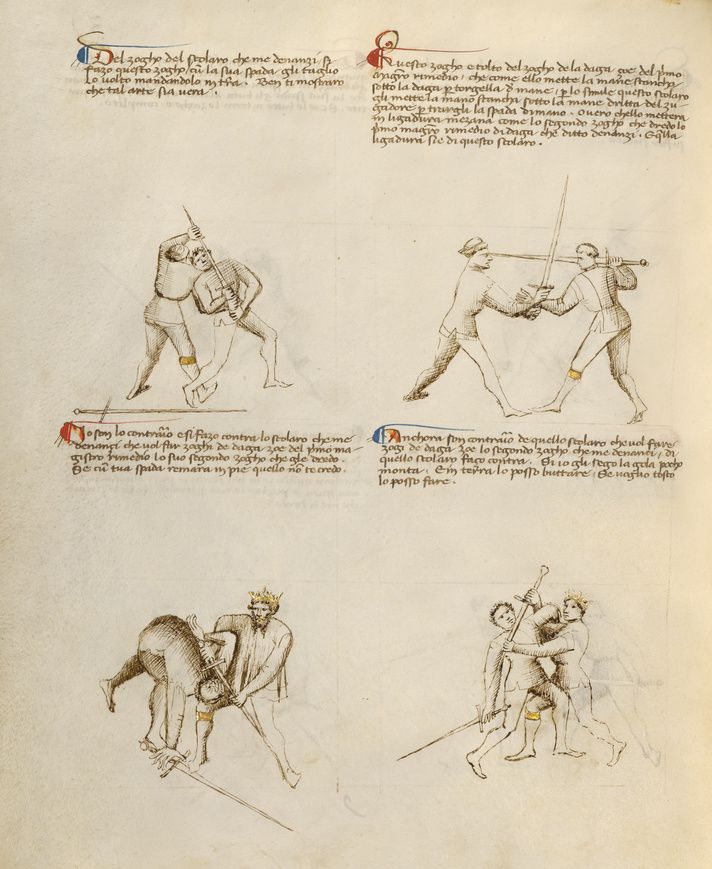 Del zogho del scolaro che me denanzi si
fazo questo zogho, cu la sua spada gli taglio
Lo volto mandandolo in tera. Ben ti mostraro
che tal arte sia vera.
Questo zogho e tolto del zogho de la daga çoe del primo
magro rimedio, che come ello mette la mane stancha
sotto la daga p torgella di mane, p lo simile questo scolaro
gli mette la mano stancha sotto la mane dritta del zu-
gadore p trargli la spada di mano. Overo chello mettera
in ligadura mezana come lo segondo zogho che dredo lo
primo magro rimedio di daga che ditto denanzi. E quella
ligadura sie di questo scolaro.
Io son lo contrario e si fazo contra lo scolaro che me
denançi che vol far zoghi de daga zoe del primo ma-
gistro rimedio lo suo segondo zogho che gle dredo.
Se cum tua spada remara in pie quello non te credo.
Anchora son contrario de quello scolaro che vol fare
zogi de daga zoe lo segondo zogho che me denanci, di
quello scolaro faço contra. Si io gli sego la gola pocho
monta. E in terra lo posso buttare, Se voglio tosto
lo posso fare.